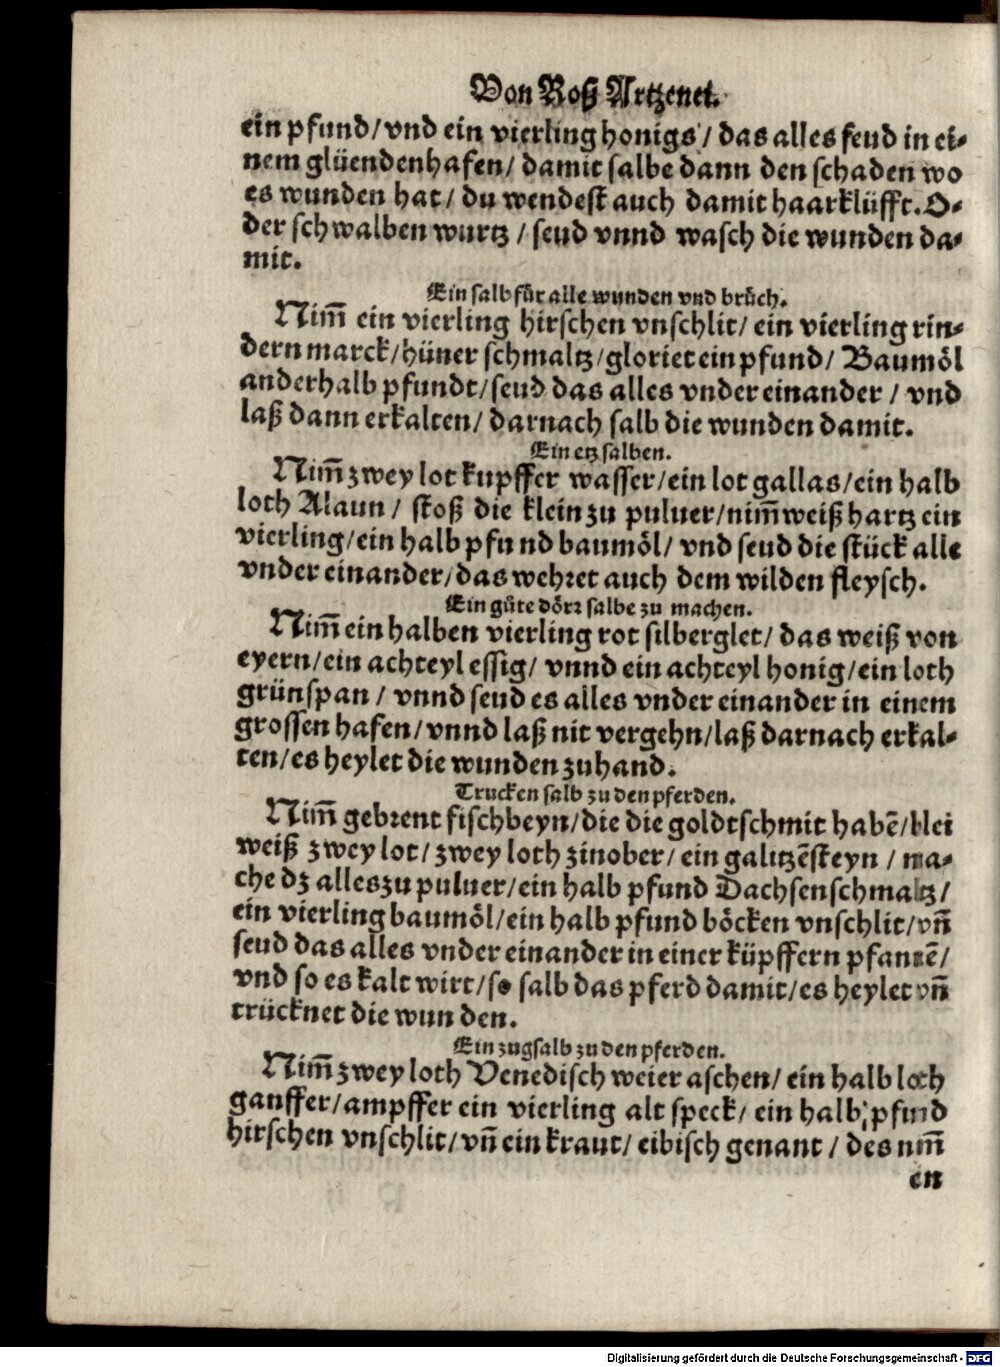 Von Roß Artzenei.
ein pfund/vnd ein vierling honigs/das alles seud in ei-
nem glüenden hafen/ damit salbe dann den schaden wo
es wunden hat/ du wendest auch damit haarklüfft. O-
der schwalben wurtz / seud vnnd wasch die wunden da-
mit.
Ein salb für alle wunden vnd brüch.
Nim̃ ein vierling hirschen vnschlit/ ein vierling rin-
dern marck/hüner schmaltz/gloriet ein pfund/ Baumöl
anderhalb pfundt/seud das alles vnder einander / vnd
laß dann erkalten/ darnach salb die wunden damit.
Ein etz salben.
Nim̃ zwey lot kupffer wasser/ein lot gallas/ein halb
loth Alaun / stoß die klein zu puluer/nim̃ weiß hartz ein
vierling/ein halb pfund baumöl/ vnd seud die stück alle
vnder einander/das wehret auch dem wilden fleysch.
Ein gůte dörr salbe zu machen.
Nim̃ ein halben vierling rot silberglet/ das weiß von
eyern/ein achteyl essig/ vnnd ein achteyl honig/ein loth
grünspan / vnnd seud es alles vnder einander in einem
grossen hafen/vnnd laß nit vergehn/laß darnach erkal-
ten/es heylet die wunden zuhand.
Trucken salb zu den pferden.
Nim̃ gebrent fischbeyn/die die goldtschmit habē/blei
weiß zwey lot/zwey loth zinober/ ein galitzēsteyn / ma-
che dz alles zu puluer/ein halb pfund Dachsenschmaltz/
ein vierling baumöl/ein halb pfund böcken vnschlit/vñ
seud das alles vnder einander in einer küpffern pfannē/
vnd so es kalt wirt/so salb das pferd damit/es heylet vñ
trücknet die wunden.
Ein zugsalb zu den pferden.
Nim̃ zwey loth Venedisch weier aschen/ ein halb loth
gauffer/ampffer ein vierling alt speck/ ein halb pfund
hirschen vnschlit/vñ ein kraut/ eibisch genant / des nim̃
en
Digitalisierung gefördert durch die Deutsche Forschungsgemeinschaft - DFG